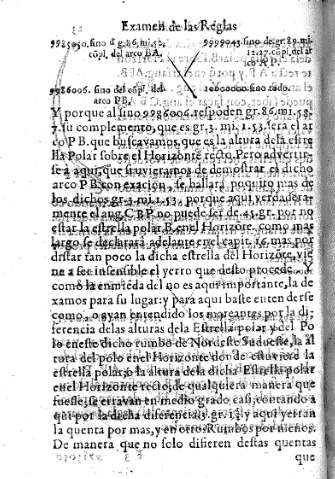 Examen de las Reglas
9985050. sino d̃ g. 86. mi. 52. cõpl. del arco BA.
9999043. sino de gr. 89. mi. cõpl. del arco
9986006. sino del cõpl. del arco PB.
10000000 sino todo.
Y porque al sino 9986006. responden gr. 86. mi. 58.
7. su complemento, que es gr. 3. mi. 1. 53. sera el ar
co P B. que buscavamos, que es la altura desta estre
lla Polar sobre el Horizonte recto. Pero advertir-
se à aqui, que si uvieramos de demostrar el dicho
arco P B. con exacion, se hallarà poquito mas de
los dichos gr. 3. mi. 1. 53. porque aqui verdadera-
mente el ang. C B P. no puede ser de 45. gr. por no
estar la estrella polar B. en el Horizonte, como mas
largo se declararà adelante en el capit. 16. mas por
distar tan poco la dicha estrella del Horizõte, vie
ne a ser insensible el yerro que desto procede.
como la enmiẽda del no es aqui importante, la de
xamos para su lugar: y para aqui baste entenderse
como, o ayan entendido los mareantes por la di-
ferencia de las alturas de la Estrella polar y del Po
lo en este dicho rumbo de Nordeste Sudueste, la al
tura del polo en el Horizonte donde estuviere la
estrella polar, o la altura desta dicha Estrella polar
en el Horizonte recto, de qualquiera manera que
fuesse, se erravan en medio grado casi, contando a
qui por la dicha diferencia 3. gr. y aqui yerran
la quenta por mas, y en otros Rumbos por menos.
De manera que no solo difieren destas quentas
que